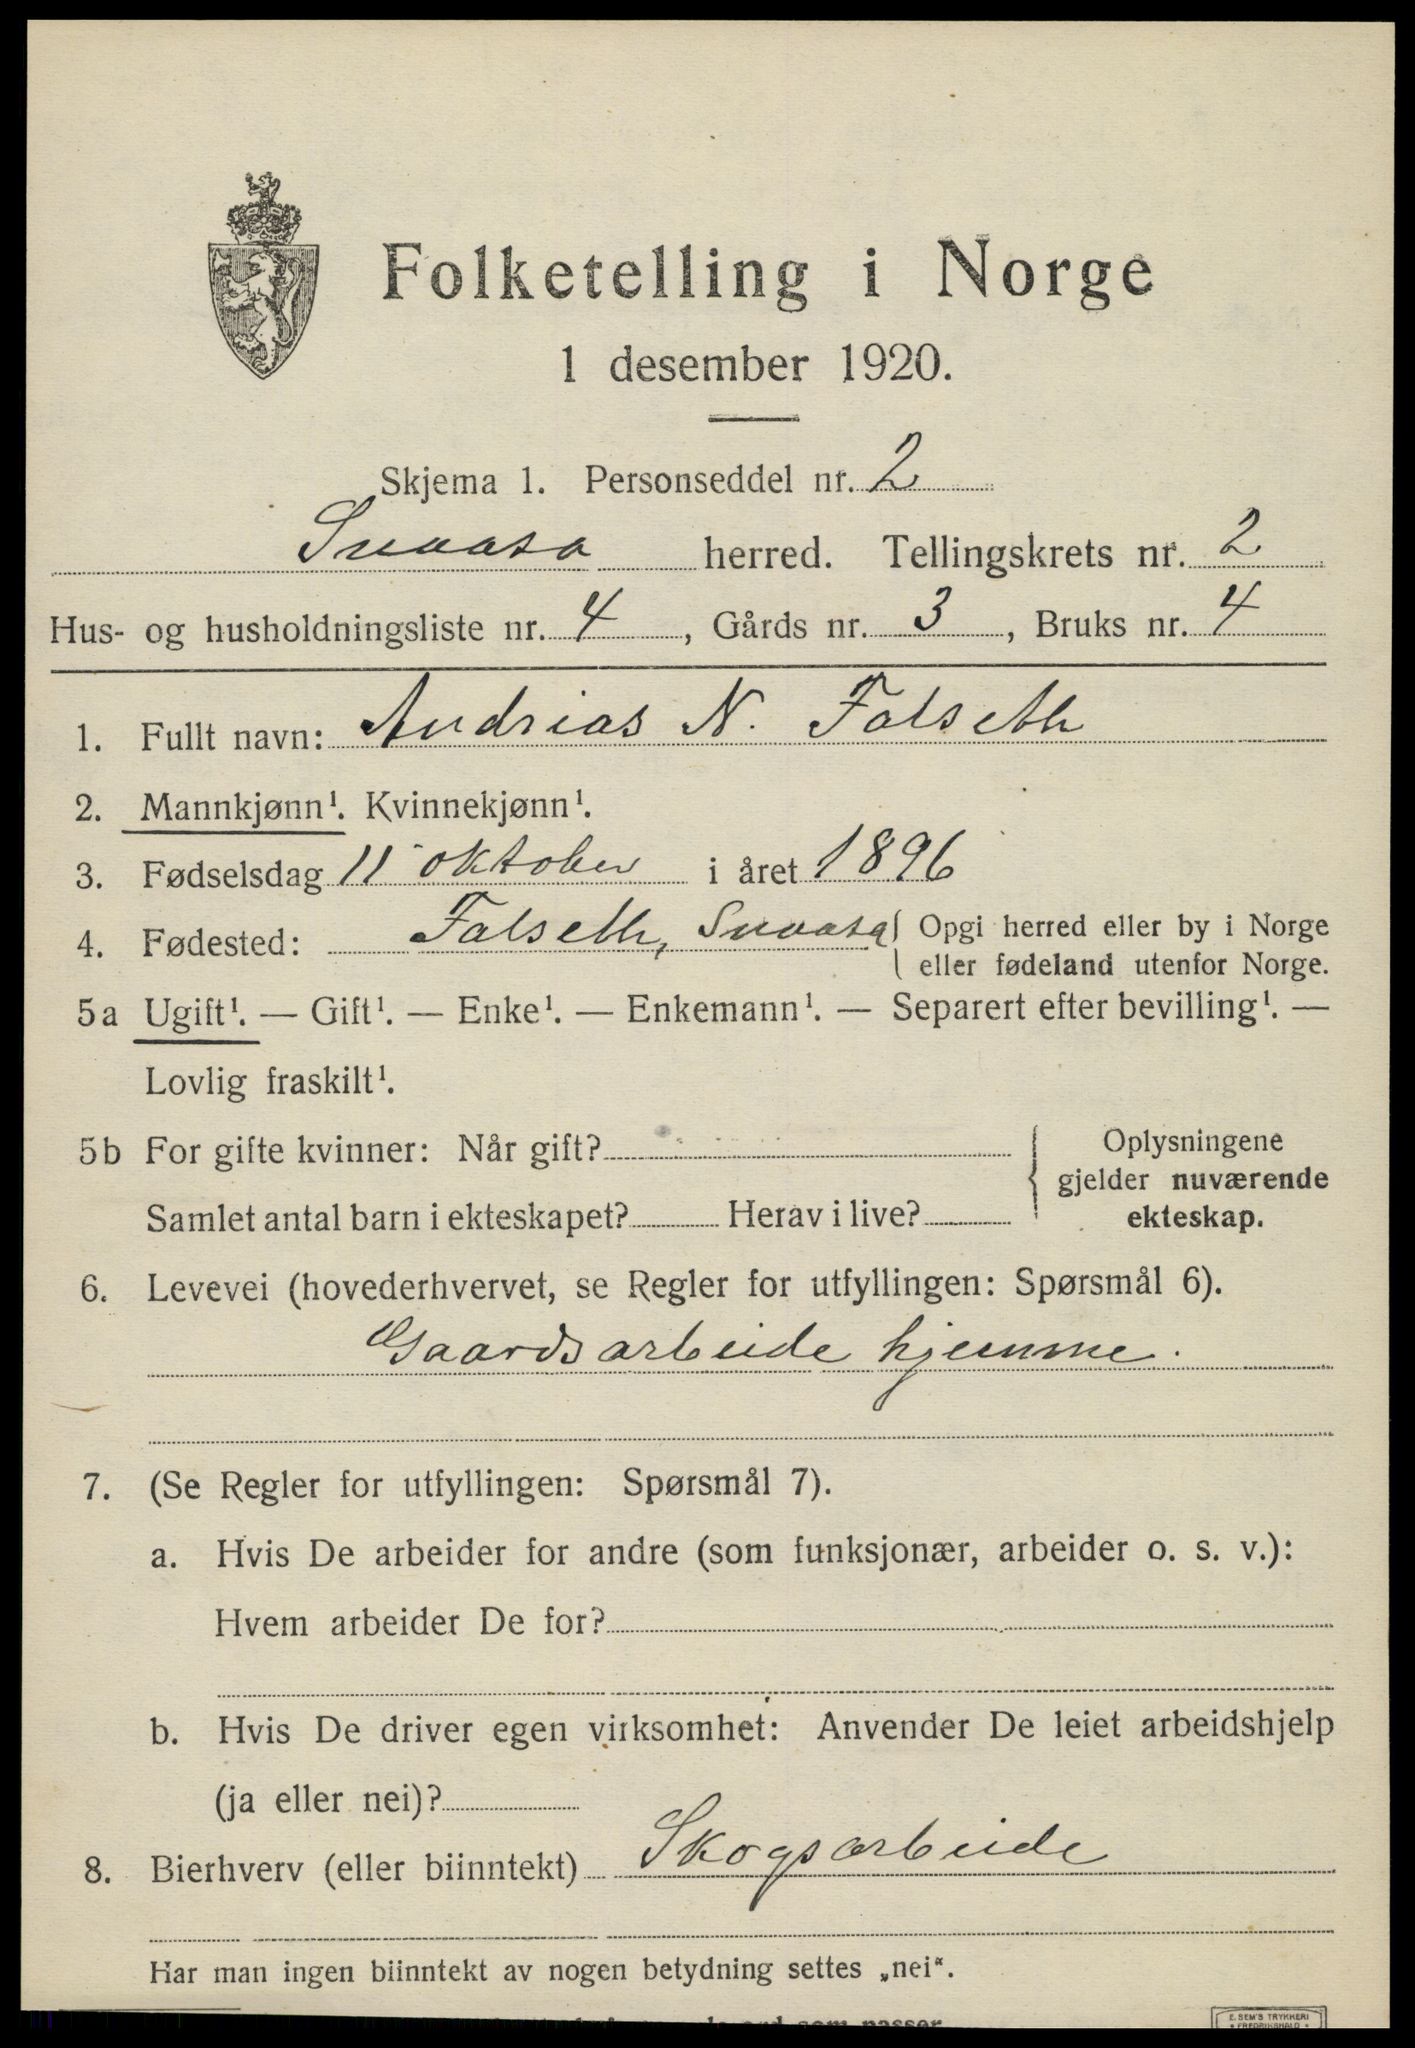 Folketelling i Norge
1 desember 1920.
Skjema 1. Personseddel nr. 2
Snaasa herred. Tellingskrets nr. 2
Hus- og husholdningsliste nr. 4, Gårds nr. 3, Bruks nr. 4
1. Fullt navn: Andrias N. Falseth
2. Mannkjønn¹. Kvinnekjønn¹.
3. Fødselsdag 11 oktober i året 1896
4. Fødested: Falseth, Snaasa { Opgi herred eller by i Norge
eller fødeland utenfor Norge.
5a Ugift¹. — Gift¹. — Enke¹. — Enkemann¹. — Separert efter bevilling¹. —
Lovlig fraskilt¹.
5b For gifte kvinner: Når gift?
Samlet antal barn i ekteskapet? Herav i live?
Oplysningene
gjelder nuværende
ekteskap.
6. Levevei (hovederhvervet, se Regler for utfyllingen: Spørsmål 6).
Gaardsarbeide hjemme.
7. (Se Regler for utfyllingen: Spørsmål 7).
a. Hvis De arbeider for andre (som funksjonær, arbeider o. s. v.):
Hvem arbeider De for?
b. Hvis De driver egen virksomhet: Anvender De leiet arbeidshjelp
(ja eller nei)?
8. Bierhverv (eller biinntekt) Skogsarbeide
Har man ingen biinntekt av nogen betydning settes „nei“.
ord som passer.
E. SEM'S TRYKKERI
FREDRIKSHALD